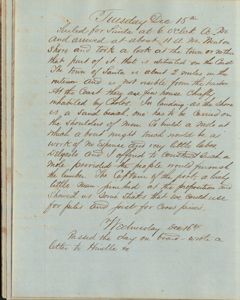 Tuesday Dec 15th
Sailed for Santa at 6 O.Clock A. M.
and arrived at about 10 A. M. Went on
Shore and took a look at the town or rather
that part of it that is situated on the Coast
The town of Santa is about 2 miles in the
interior and is not visible from the harbor
At the Coast they are poor houses chiefly
inhabited by Cholos. In landing as the shore
is a Sand beach one has to be carried on
the Shoulders of Men to build a mole at
which a boat might land would be a
work of no expense and very little labor.
Delgado and I offered to construct a
mole provided the people would furnish
the lumber. The Captain of the port a burly
little man at the proposition and
Showed us some Shots that we could use
for piles and for cross pieces
Wednesday Dec 16th
Passed the day on board - wrote a
letter to &c